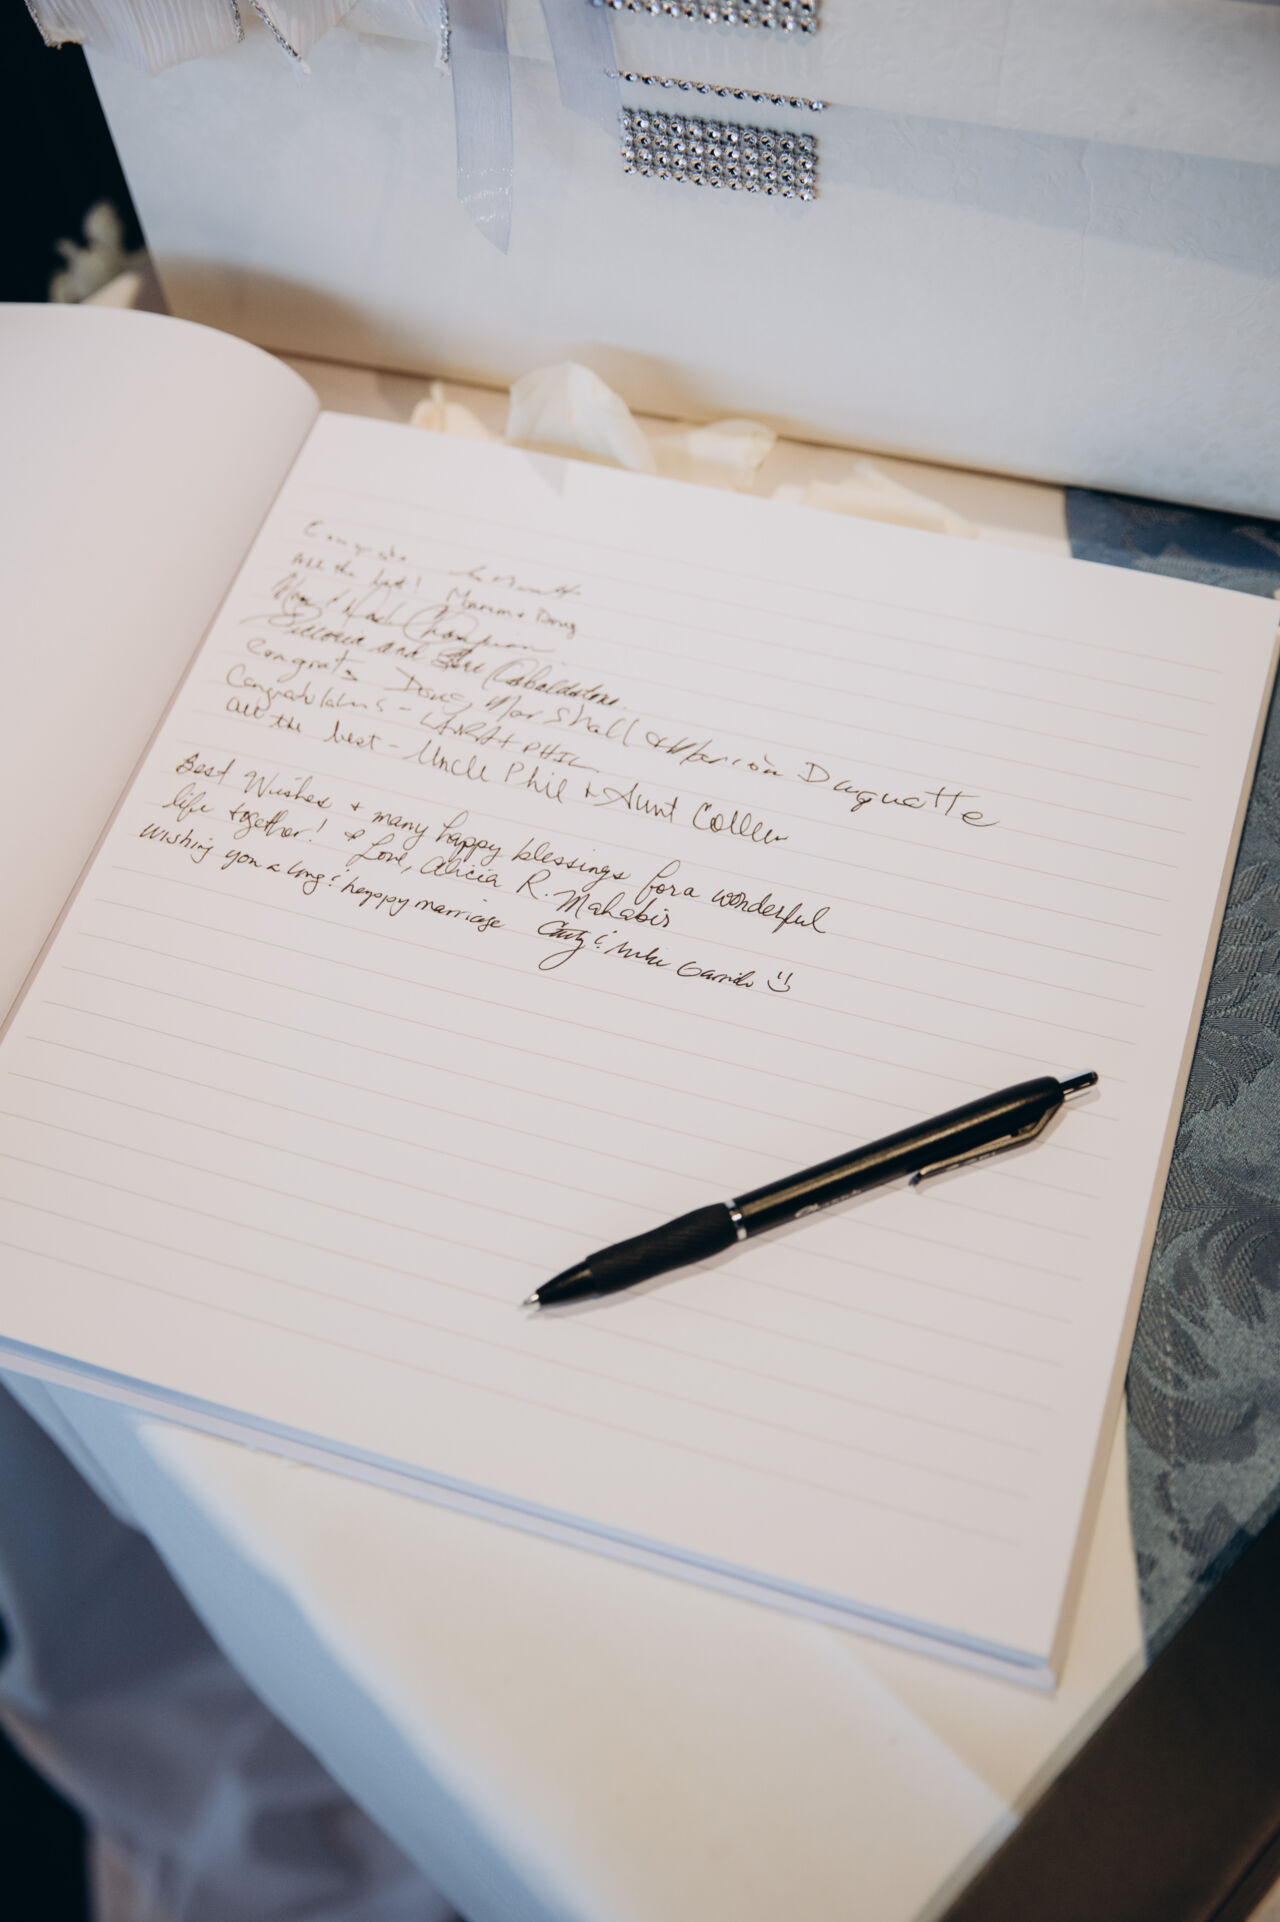 Congrats
All the best! Mom + Doug
Mom & Dad Champion
Victoria and Cobaldston
Congrats Doug Marshall & Marion Duquette
Congratulations - LAURA + PHIL
All the best - Uncle Phil + Aunt Colleen
Best Wishes + many happy blessings for a wonderful
life together! Love, Alicia R. Mahabir
Wishing you a long & happy marriage & Mike Garrido